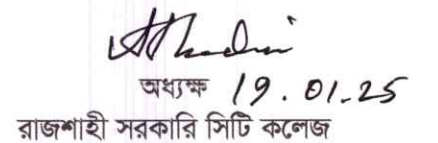 অধ্যক্ষ 19.01.25
রাজশাহী সরকারি সিটি কলেজ